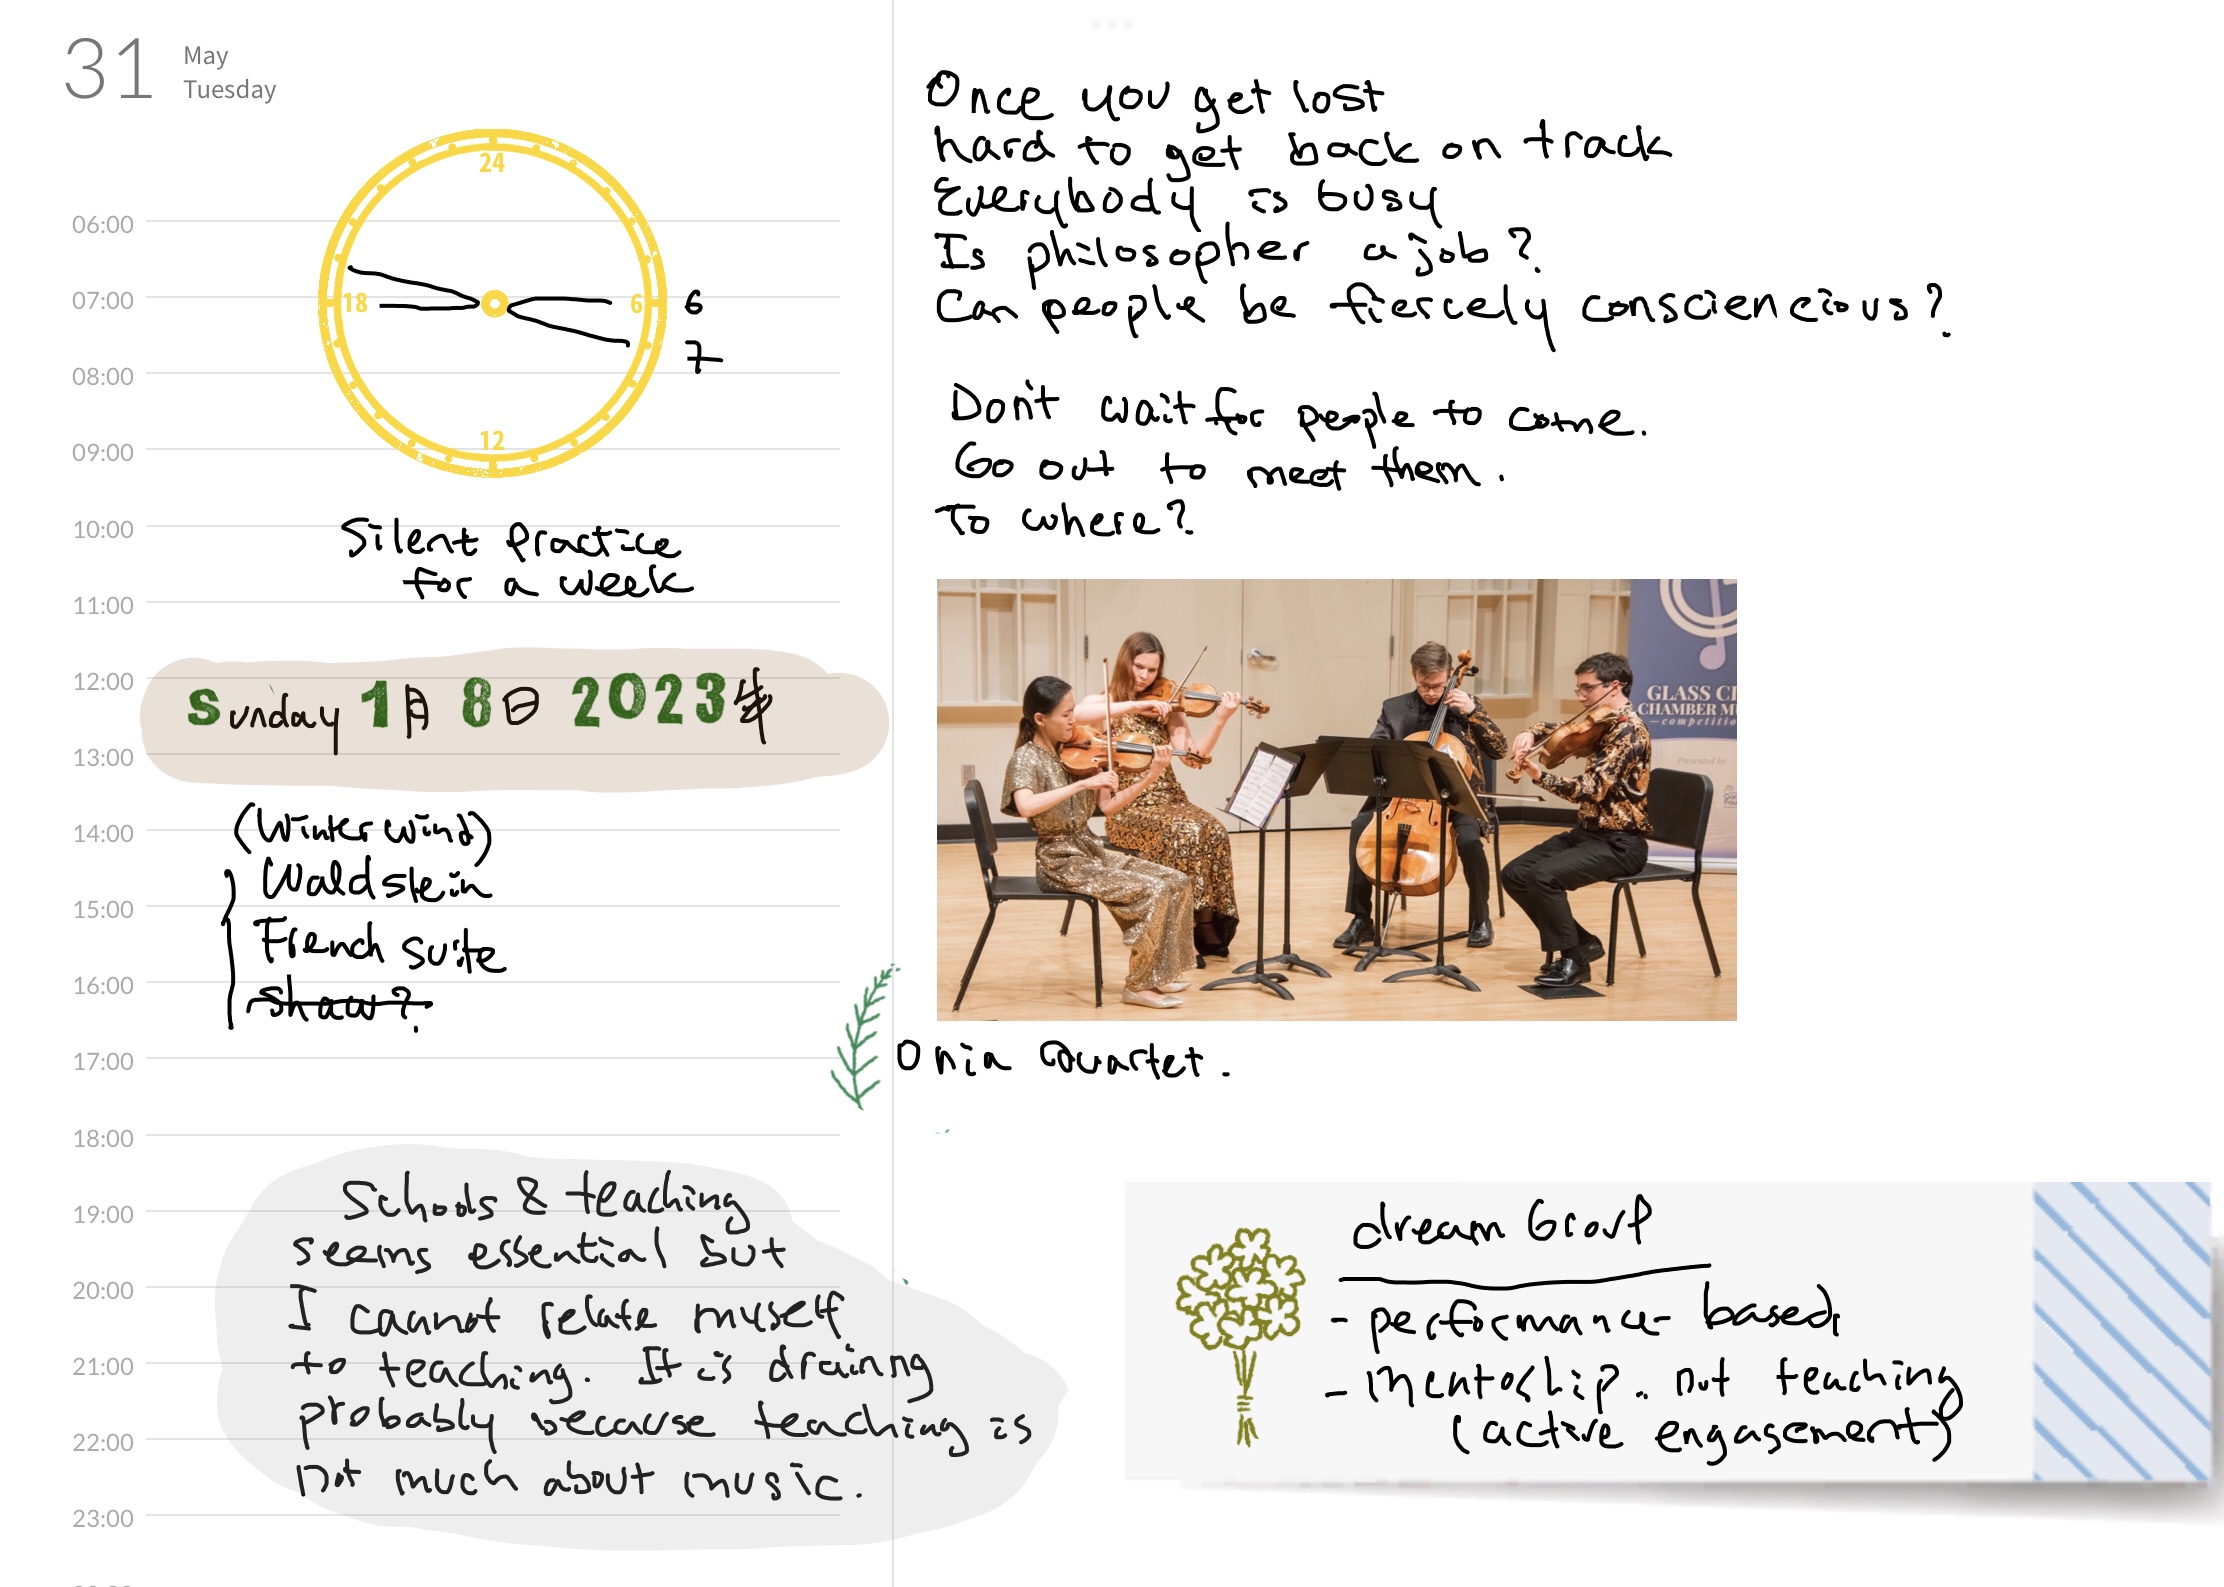 31
May
Tuesday
24
18
6
12
6
7
06:00
07:00
08:00
09:00
10:00
11:00
12:00
13:00
14:00
15:00
16:00
17:00
18:00
19:00
20:00
21:00
22:00
23:00
Silent practice
for a week
Sunday 1月 8日 2023年
(Winter wind)
Waldstein
French suite
Shaw?
Schools & teaching
seems essential but
I cannot relate myself
to teaching. It is drainng
probably because teaching is
not much about music.
Once you get lost
hard to get back on track
Everybody is busy
Is philosopher a job?
Can people be fiercely consciencious?
Don't wait for people to come.
Go out to meet them.
To where?
GLASS CI
CHAMBER MU
competitio
Presented by
Onia Quartet.
dream Group
- performance-based,
- mentoship. not teaching
(active engagement)